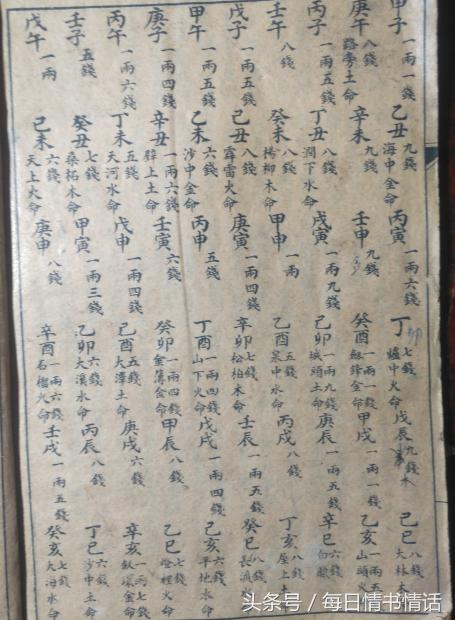 甲子 一兩一錢 乙丑 九錢 海中金命 丙寅 一兩六錢 丁卯 七錢 爐中火命 戊辰 九錢 木 己巳 八錢 大林木
庚午 八錢 路旁土命 辛未 九錢 壬申 九錢 癸酉 一兩一錢 劍鋒金命 甲戌 一兩一錢 乙亥 一兩五 山頭火
丙子 一兩五錢 丁丑 八錢 澗下水命 戊寅 一兩九錢 己卯 一兩九錢 城頭土命 庚辰 一兩五錢 辛巳 六錢 白臘
壬午 八錢 癸未 八錢 楊柳木命 甲申 一兩 乙酉 五錢 泉中水命 丙戌 八錢 丁亥 八錢 屋上土
戊子 一兩五錢 己丑 八錢 霹雷火命 庚寅 一兩四錢 辛卯 七錢 松柏木命 壬辰 一兩五錢 癸巳 八錢 長流水
甲午 一兩五錢 乙未 六錢 沙中金命 丙申 五錢 丁酉 一兩四錢 山下火命 戊戌 一兩四錢 己亥 六錢 平地木命
庚子 一兩四錢 辛丑 一兩六錢 壁上土命 壬寅 六錢 癸卯 一兩四錢 金簿金命 甲辰 八錢 乙巳 七錢 燈裡火命
丙午 一兩六錢 丁未 五錢 天河水命 戊申 一兩四錢 己酉 五錢 大澤土命 庚戌 六錢 辛亥 一兩七錢 釵環金命
壬子 五錢 癸丑 七錢 桑柘木命 甲寅 一兩三錢 乙卯 六錢 大溪水命 丙辰 八錢 丁巳 六錢 沙中土命
戊午 一兩 己未 六錢 天上火命 庚申 八錢 辛酉 一兩六錢 石榴火命 壬戌 一兩五錢 癸亥 七錢 大海水命
头条号 / 每日情书情话